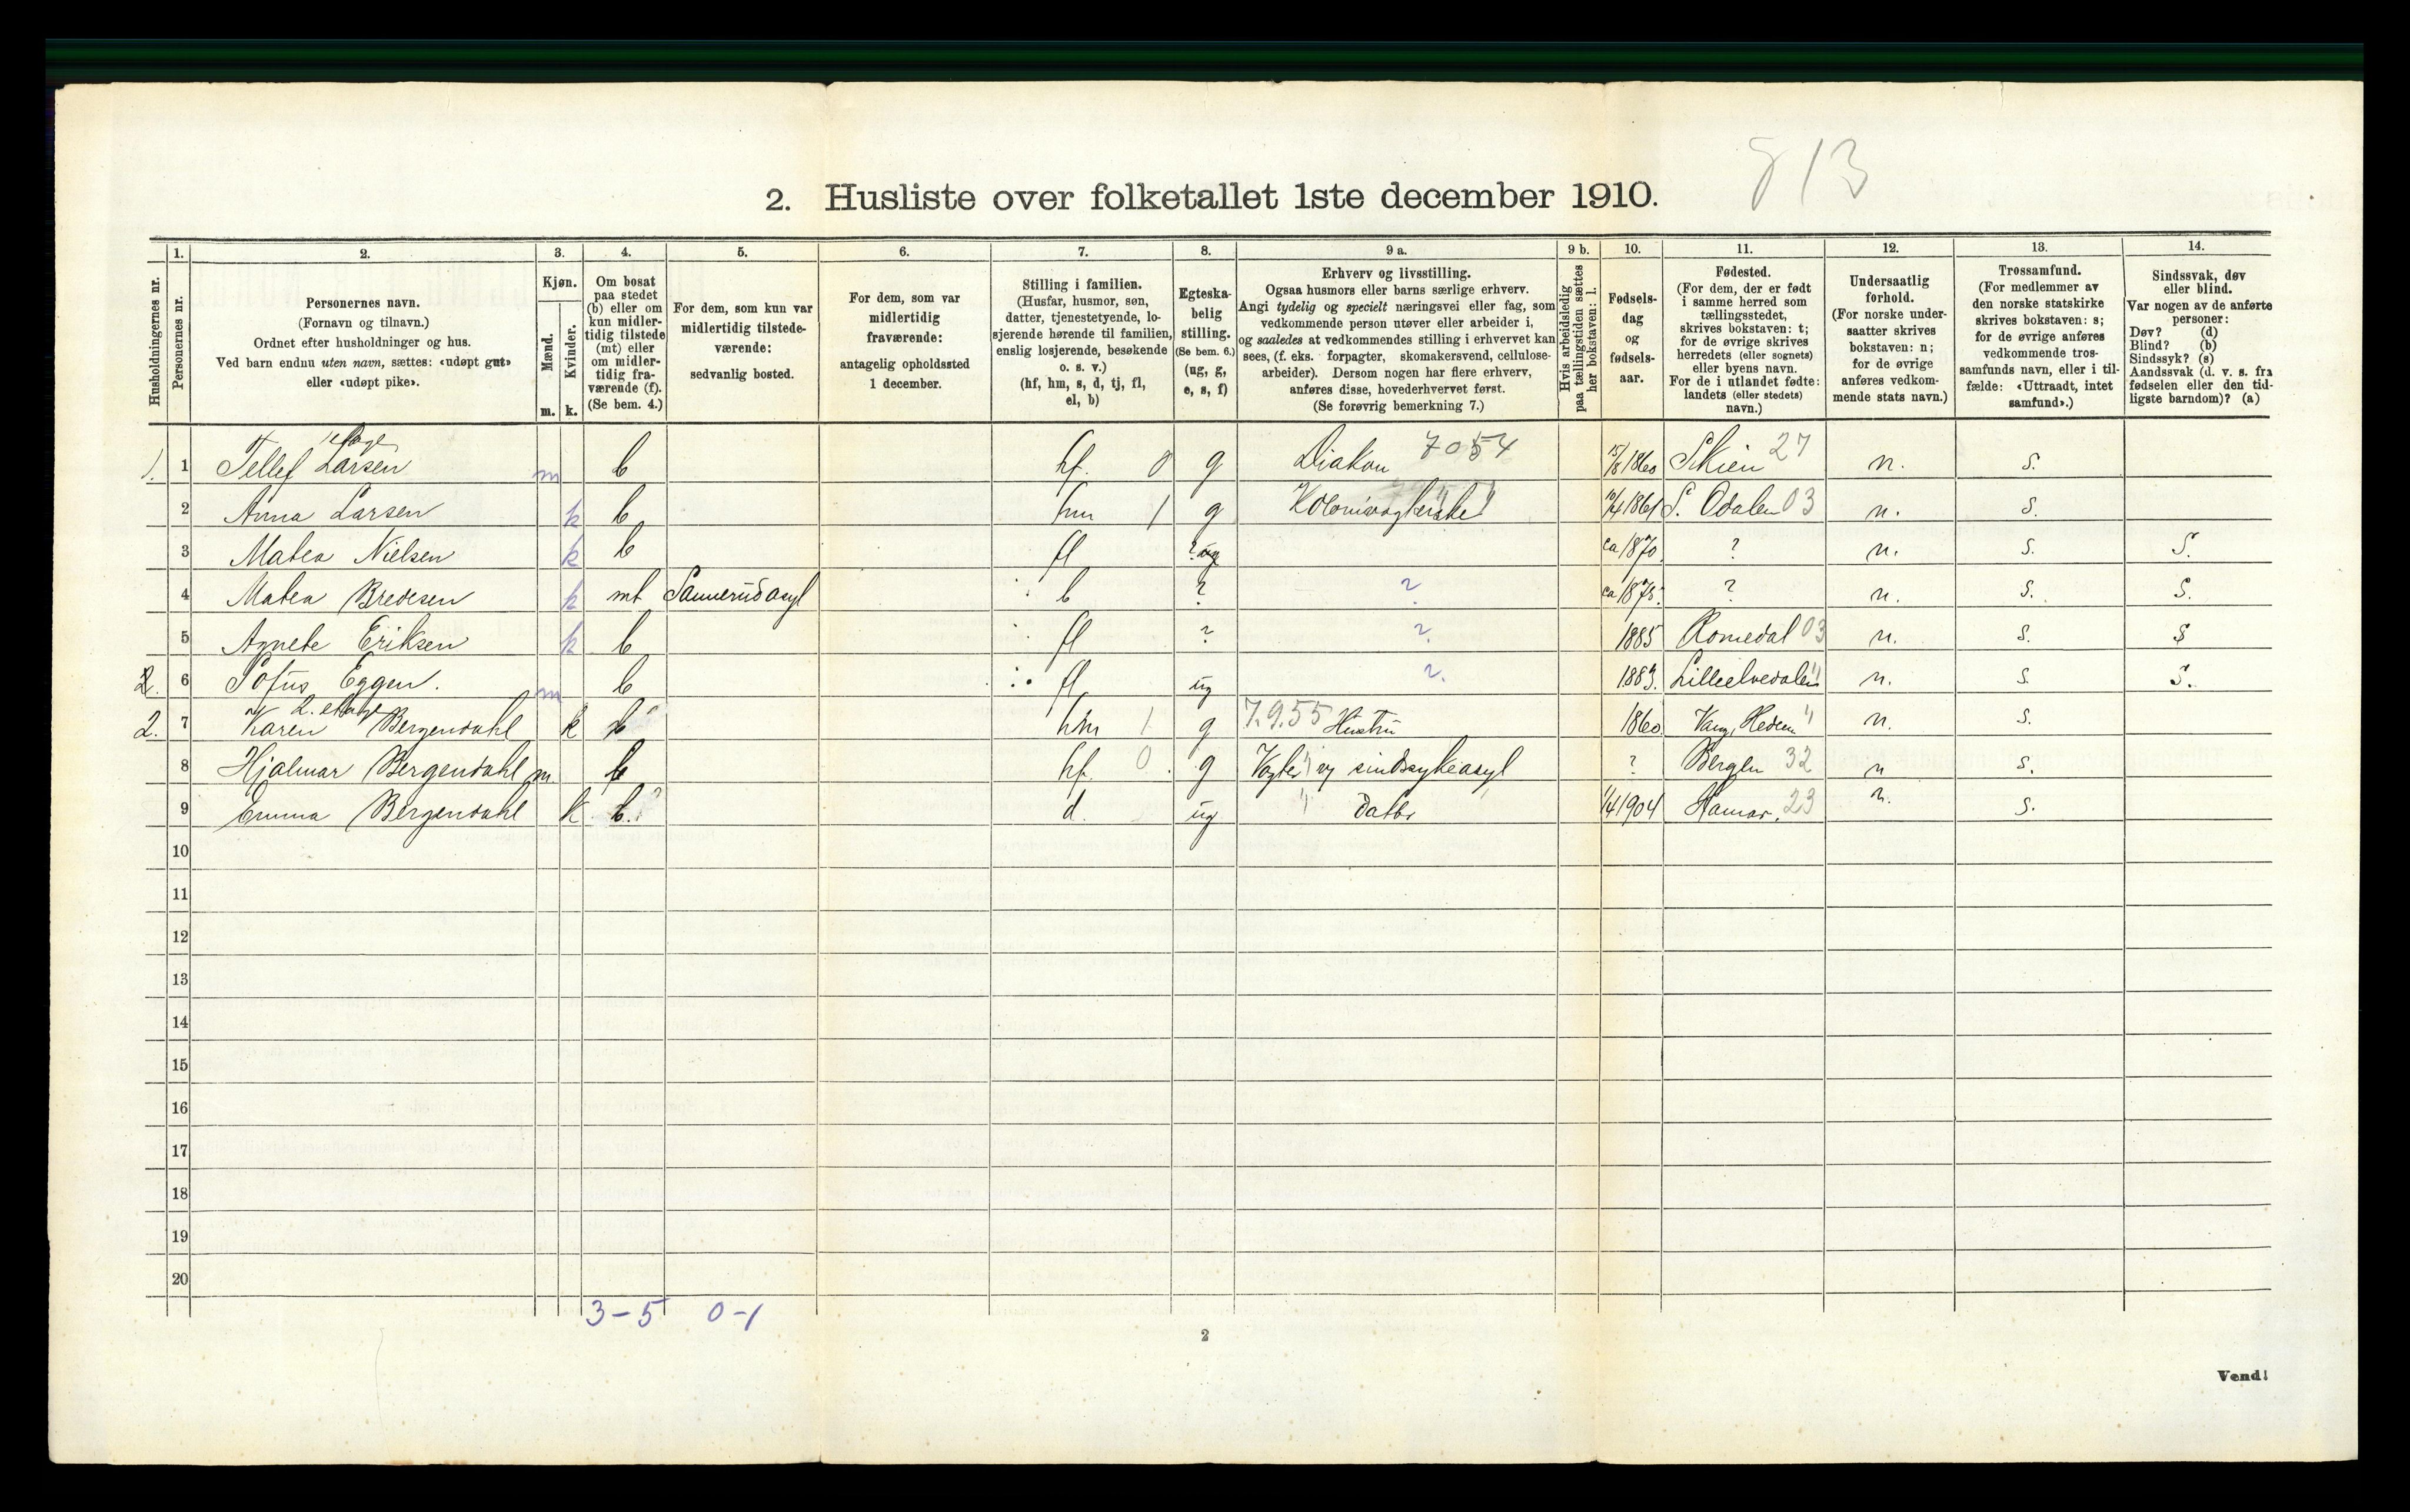 813
2. Husliste over folketallet 1ste december 1910.
Husholdningernes nr.
1.
Personernes nr.
2.
Personernes navn.
(Fornavn og tilnavn.)
Ordnet efter husholdninger og hus.
Ved barn endnu uten navn, sættes: «udøpt gut»
eller «udøpt pike».
3.
Kjøn.
Mænd.
Kvinder.
m. k.
4.
Om bosat
paa stedet
(b) eller om
kun midler-
tidig tilstede
(mt) eller
om midler-
tidig fra-
værende (f).
(Se bem. 4.)
5.
For dem, som kun var
midlertidig tilstede-
værende:
sedvanlig bosted.
6.
For dem, som var
midlertidig
fraværende:
antagelig opholdssted
1 december.
7.
Stilling i familien.
(Husfar, husmor, søn,
datter, tjenestetyende, lo-
sjerende hørende til familien,
enslig losjerende, besøkende
o. s. v.)
(hf, hm, s, d, tj, fl,
el, b)
8.
Egteska-
belig
stilling.
(Se bem. 6.)
(ug, g,
e, s, f)
9 a.
Erhverv og livsstilling.
Ogsaa husmors eller barns særlige erhverv.
Angi tydelig og specielt næringsvei eller fag, som
vedkommende person utøver eller arbeider i,
og saaledes at vedkommendes stilling i erhvervet kan
sees, (f. eks. forpagter, skomakersvend, cellulose-
arbeider). Dersom nogen har flere erhverv,
anføres disse, hovederhvervet først.
(Se forøvrig bemerkning 7.)
9 b.
Hvis arbeidsledig
paa tællingstiden sættes
her bokstaven: l.
10.
Fødsels-
dag
og
fødsels-
aar.
11.
Fødested.
(For dem, der er født
i samme herred som
tællingsstedet,
skrives bokstaven: t;
for de øvrige skrives
herredets (eller sognets)
eller byens navn.
For de i utlandet fødte:
landets (eller stedets)
navn.)
12.
Undersaatlig
forhold.
(For norske under-
saatter skrives
bokstaven: n;
for de øvrige
anføres vedkom-
mende stats navn.)
13.
Trossamfund.
(For medlemmer av
den norske statskirke
skrives bokstaven: s;
for de øvrige anføres
vedkommende tros-
samfunds navn, eller i til-
fælde: «Uttraadt, intet
samfund».)
14.
Sindssvak, døv
eller blind.
Var nogen av de anførte
personer:
Døv? (d)
Blind? (b)
Sindssyk? (s)
Aandssvak (d. v. s. fra
fødselen eller den tid-
ligste barndom)? (a)
1. 1 Tellef Larsen m b hf. 0 g Diakon 7054 15/8 1860 Skien 27 n. s.
2 Anna Larsen k b hm 1 g 1861 S. Odalen 03 n. s.
3 Matea Nielsen k b fl ? ug ca 1870 ? n. s. S.
4 Matea Bredesen k mt Sannerudasyl b ? ? ca 1875 ? n. s. S.
5 Agnete Eriksen k b fl ? ? 1885 Romedal 03 n. s. S
2. 6 Sofus Eggen. m b fl ug ? 1883. Lilleelvedalen " n. s. S.
2. etage
2. 7 Karen Bergendahl k b hm 1 g 7.9.55 Hustru 1860 Vang, Hedem " n. s.
8 Hjalmar Bergendahl m b hf. 0. g Vogter v/ sindssykeasyl ? Bergen 32 n s.
9 Emma Bergendahl k b. d. ug " Datter 1/4 1904 Hamar. 23 n. s.
10
11
12
13
14
15
16
17
18
19
20
3-5 0-1
2
Vend!